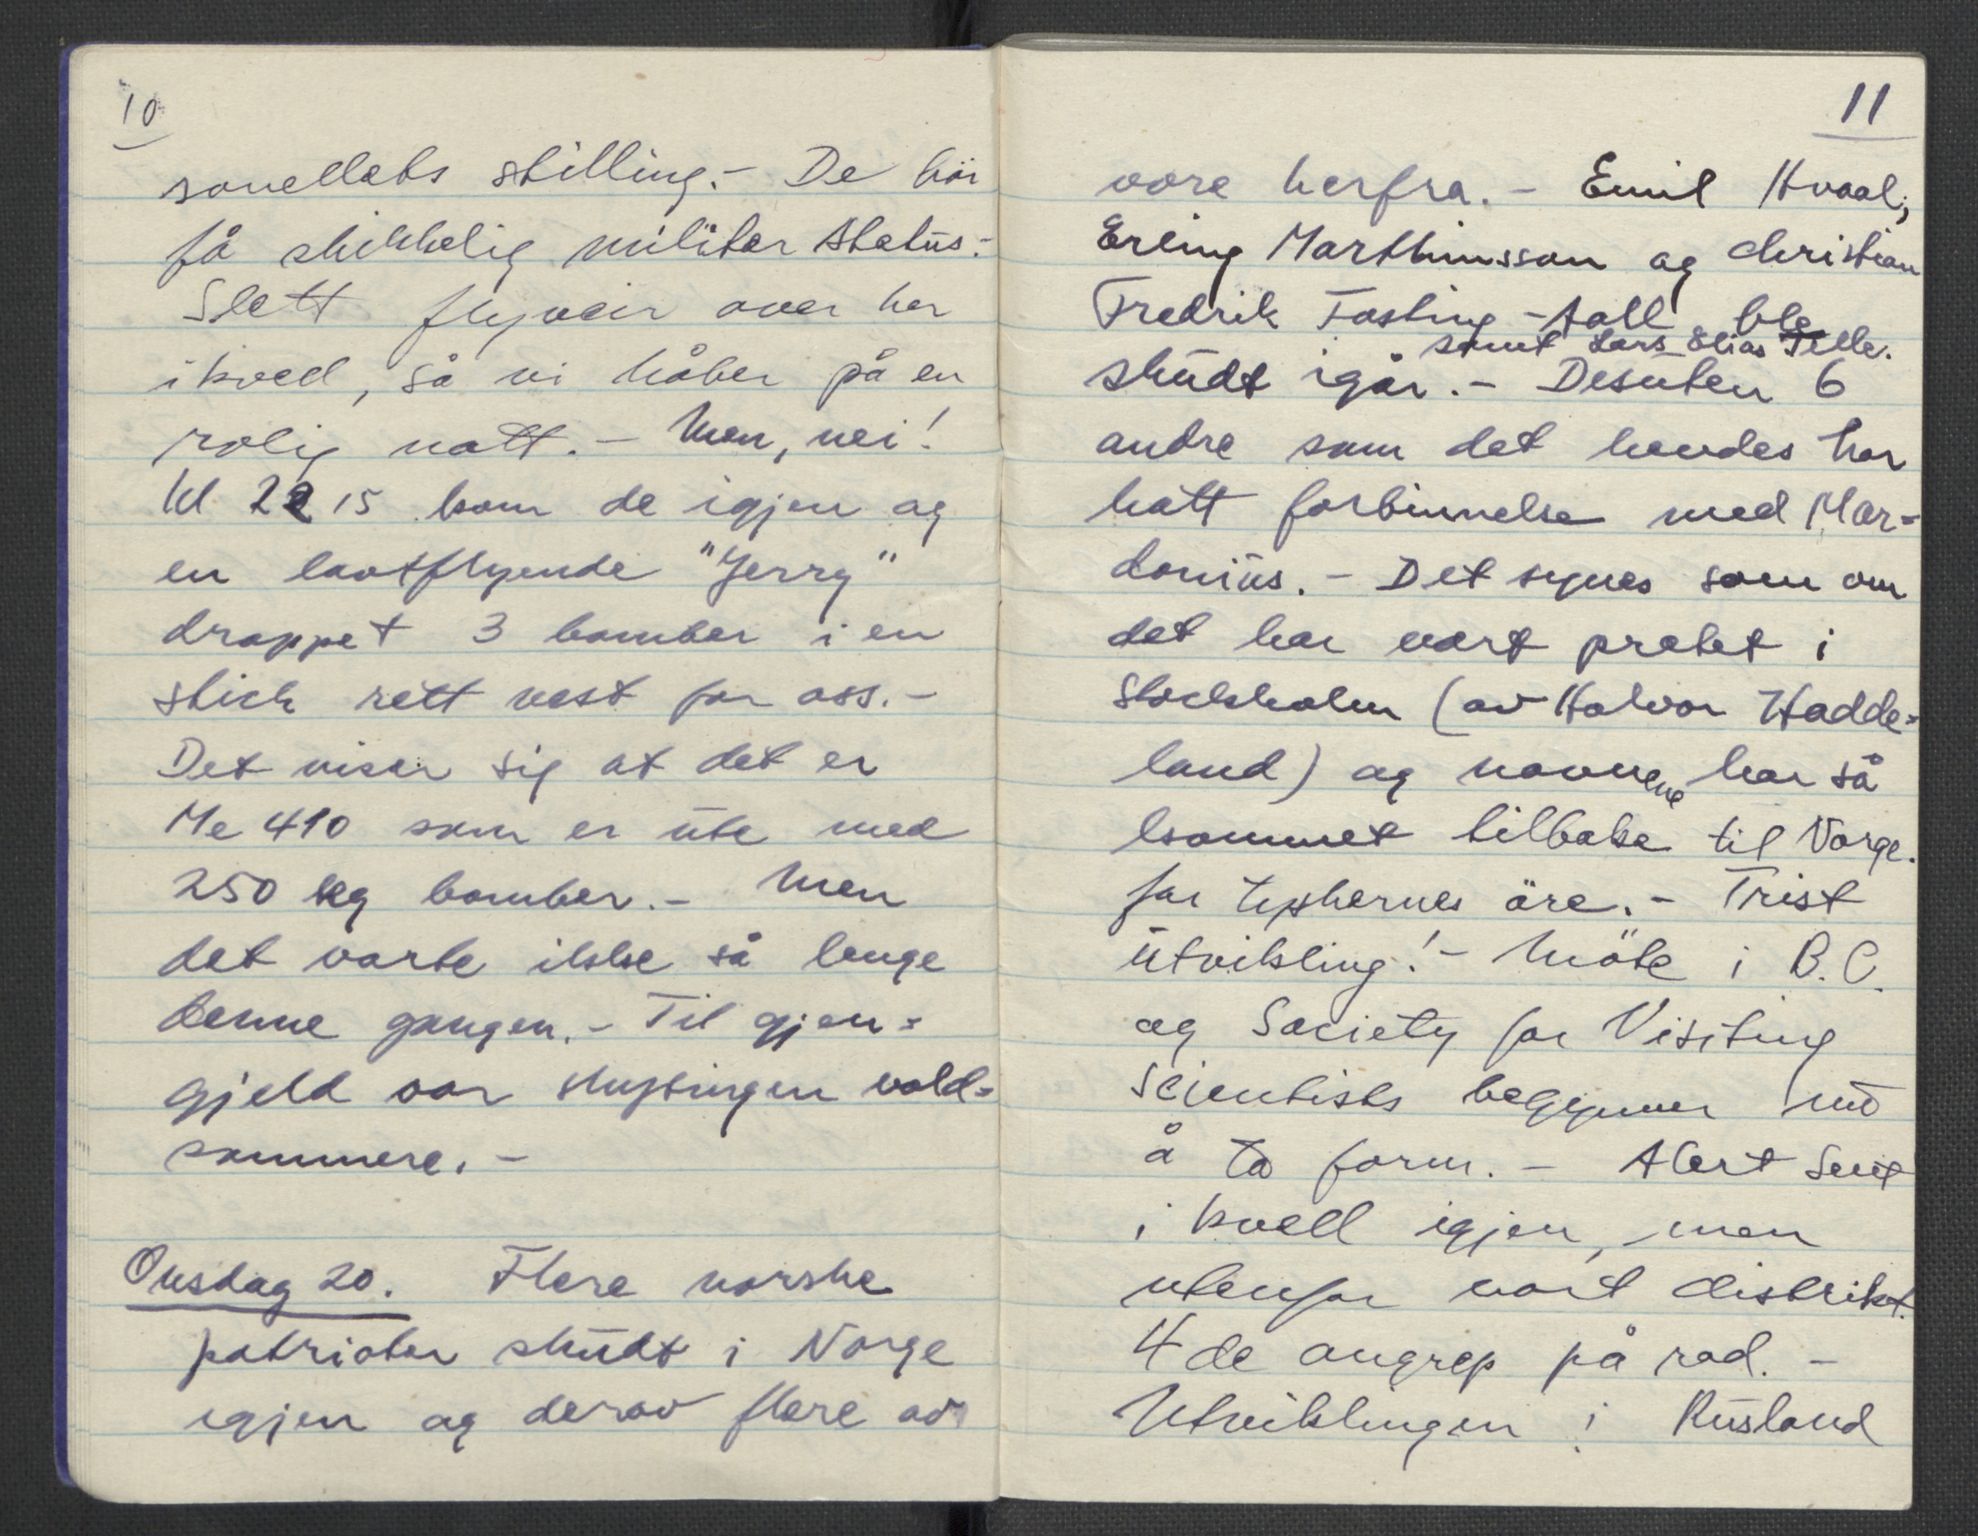 10
sonellets stilling.- De bör
få skikkelig militær status.-
Slett flyveir over her
ikveld, så vi håber på en
rolig natt. - Men, nei!
Kl 2215 kom de igjen og
en lavtflyende "Jerry"
droppet 3 bomber i en
stick rett vest for oss.-
Det viser sig at det er
Me 410 som er ute med
250 kg bomber.- Men
det varte ikke så lenge
denne gangen.- Til gjen=
gjeld var skytingen vold=
sommere.-
Onsdag 20. Flere norske
patrioter skudt i Norge
igjen og derav flere av
11
våre herfra.- Emil Hvaal,
Erling Marthinsson og Christian
Fredrik Fasting-Aall ble
samt Lars Elias Telle.
skudt igår.- Desuten 6
andre som det hendes har
hatt forbinnelse med Mar=
donius.- Det synes som om
det har vært pratet i
Stockholm (av Halvor Hadde=
land) og navnene har så
kommet tilbake til Norge.
for tyskernes øre.- Trist
utvikling!- Möte i B.C.
og Society for Visiting
Scientists begynner nu
å ta form. - Alert sent
i kvell igjen, men
utenfor vårt distrikt.
4de angrep på rad.-
Utviklingen i Rusland